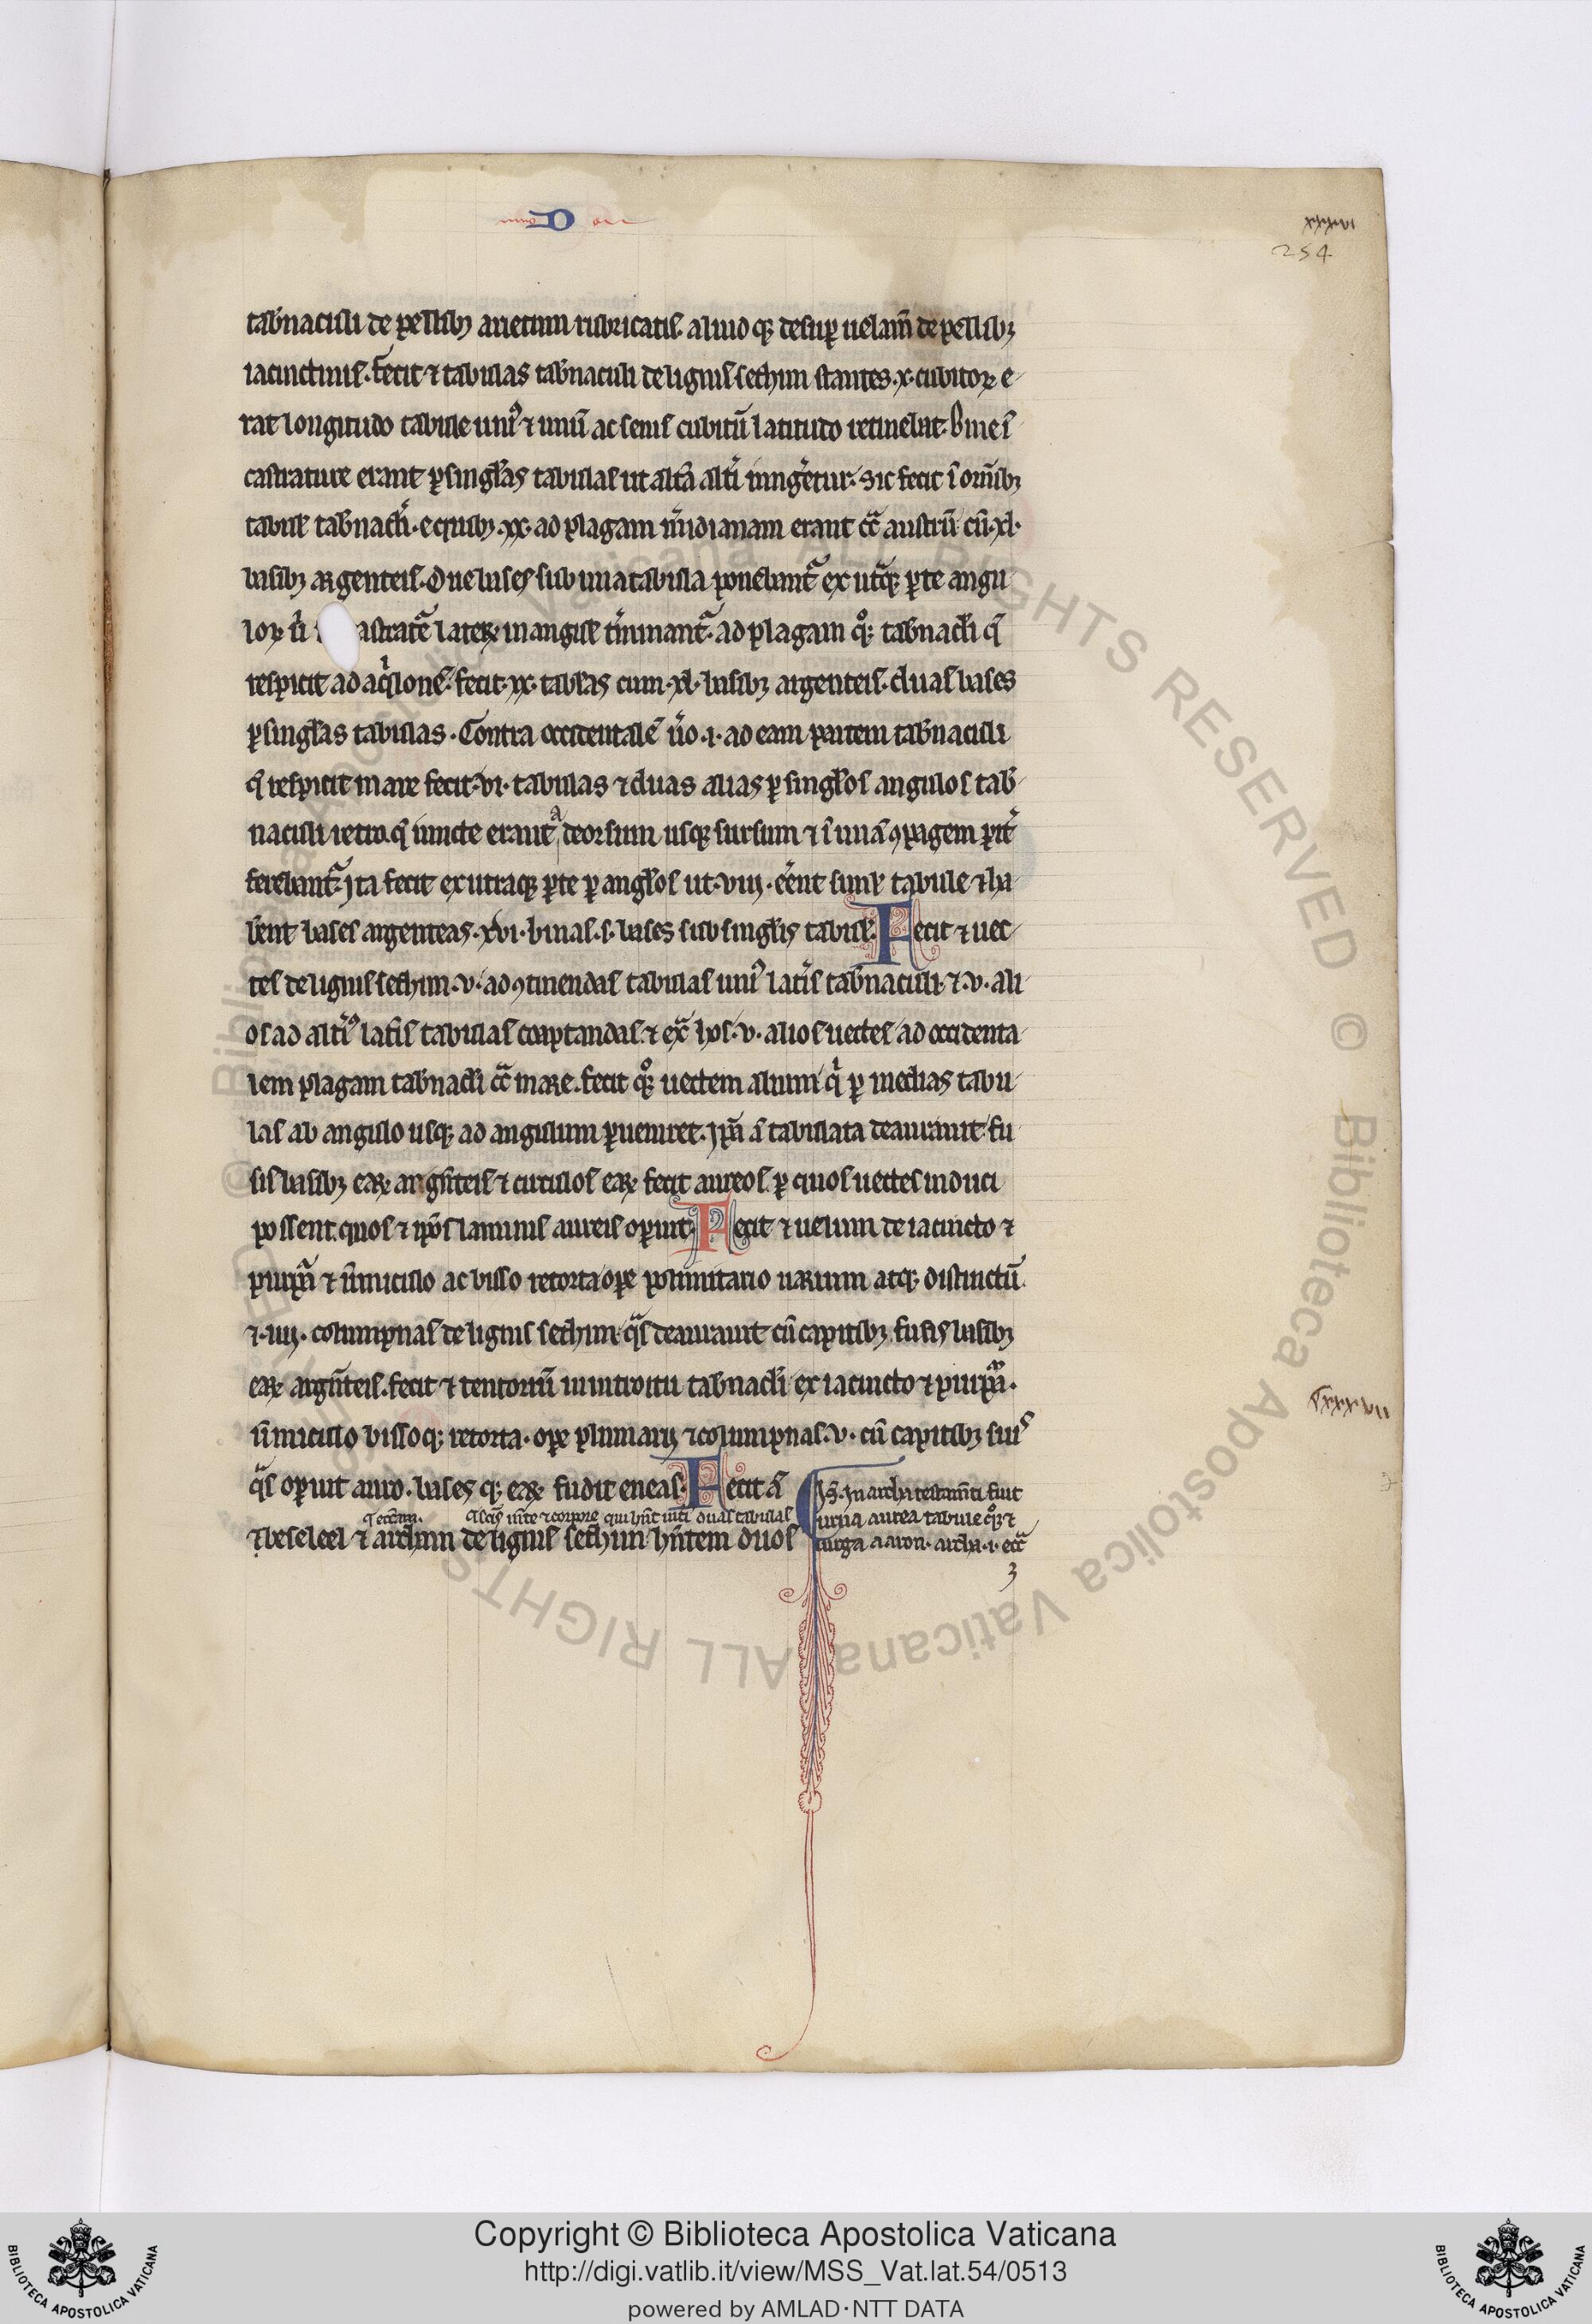 xxxvi
254
tab̄naculi de pellibꝫ arietum rubricatis. aliud qꝫ desuꝑ uelam̄ de pellibꝫ
iacinctinis. fecit ⁊ tabulas tab̄naculi de lignis sethim stantes .x. cubitoꝝ e
rat longitudo tabule uni᷒ ⁊ unū ac semis cubitū latitudo retinebat. bine ī
castrature erant ꝑ singl̄as tabulas ut alt̄a alt̄i iungēt̄ur. Sic fecit ī om̄ibꝫ
tabul̄ tab̄nacli. e quibꝫ .xx. ad plagam m̄idianam erant cc̄ austrū cū .xl.
basibꝫ argenteis. Due bases sub una tabula ponebant̄ ex utqꝫ ꝑte angu
loꝝ ū astrat̄e lateꝝ in angul̄ t̄minant̄. ad plagam qꝫ tab̄nacli q̄
respicit ad aq̇lonē. fecit .xx. tabl̄as cum .xl. basibꝫ argenteis. duas bases
ꝑ singl̄as tabulas. Contra occidentalē ū̇o .i. ad eam partem tab̄naculi
q̄ respicit mare fecit .vi. tabulas ⁊ duas alias ꝑ singl̄os angulos tab̄
naculi retro. q̄ iuncte erant a deorsum usqꝫ sursum ⁊ ī unā ꝯpagem ꝑit̄
ferebant̄. Ita fecit ex utraqꝫ ꝑte ꝑ angl̄os ut .viij. eēnt simul̄ tabule ⁊ ha
b̄ent bases argenteas .xvi. binas .s. bases sub singl̄is tabul̄. Fecit ⁊ uec
tes de lignis sethim .v. ad ꝯtinendas tabulas uni᷒ lat̄is tab̄naculi. ⁊ .v. ali
os ad alt̄i᷒ lat̄is tabulas coaptandas. ⁊ ex̄ hos .v. alios uectes ad occidenta
lem plagam tab̄nacli cc̄ mare. fecit qꝫ uectem alium q̇ ꝑ medias tabu
las ab angulo usqꝫ ad angulum ꝑueniret. Ip̄a ā tabulata deaurauit. fu
sis basibꝫ eaꝝ arḡnteis ⁊ circulos eaꝝ fecit aureos. ꝑ quos uectes induci
possent. quos ⁊ ip̄os laminis aureis oꝑuit. Fecit ⁊ uelum de iacincto ⁊
purꝑa ⁊ ū̄miculo ac bisso retorta oꝑe polimitario uarium atqꝫ distinctū.
⁊ .iiij. columpnas de lignis sethim q̄s deaurauit cū capitibꝫ fusis basibꝫ
eaꝝ arḡnteis. fecit ⁊ tentoriū in introitu tab̄nacli ex iacincto ⁊ purꝑa.
ū̄miculo bisso qꝫ retorta. oꝑe plumarij ⁊ columpnas .v. cū capitibꝫ suis
q̄s oꝑuit auro. bases qꝫ eaꝝ fudit eneas. Fecit ā
xxxvii
⁊ beseleel ⁊ archam de lignis sethim hn̄tem duos
In archa testam̄ti fuit
urna aurea tabule qꝫ ⁊
uirga aaron. archa .i. ecc̄a
Copyright © Biblioteca Apostolica Vaticana
http://digi.vatlib.it/view/MSS_Vat.lat.54/0513
powered by AMLAD·NTT DATA
BIBLIOTECA APOSTOLICA VATICANA
BIBLIOTECA APOSTOLICA VATICANA